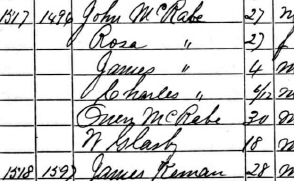 1517 1496 John McRabe 27 m
Rosa " 27 f
James " 4 m
Charles " 4/12 m
Owen McRabe 30 m
W Slasby 18 m
1518 1597 James Keman 28 m